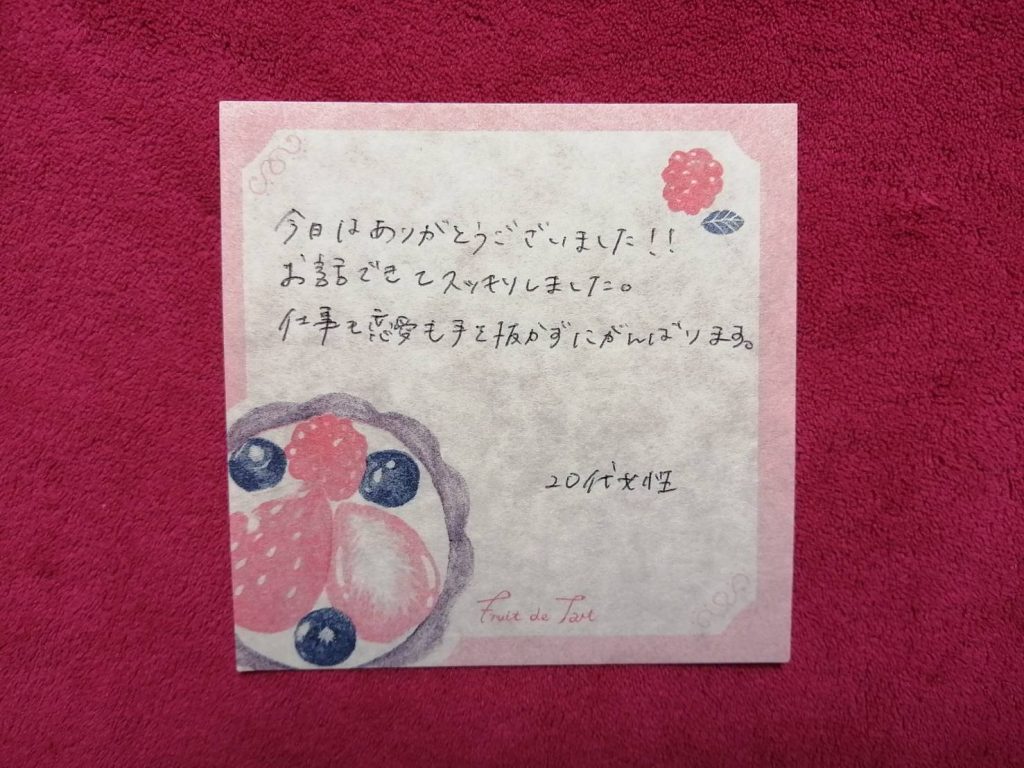 今日はありがとうございました!!
お話できてスッキリしました。
仕事も恋愛も手を抜かずにがんばります。
20代女性
Fruit de Tart